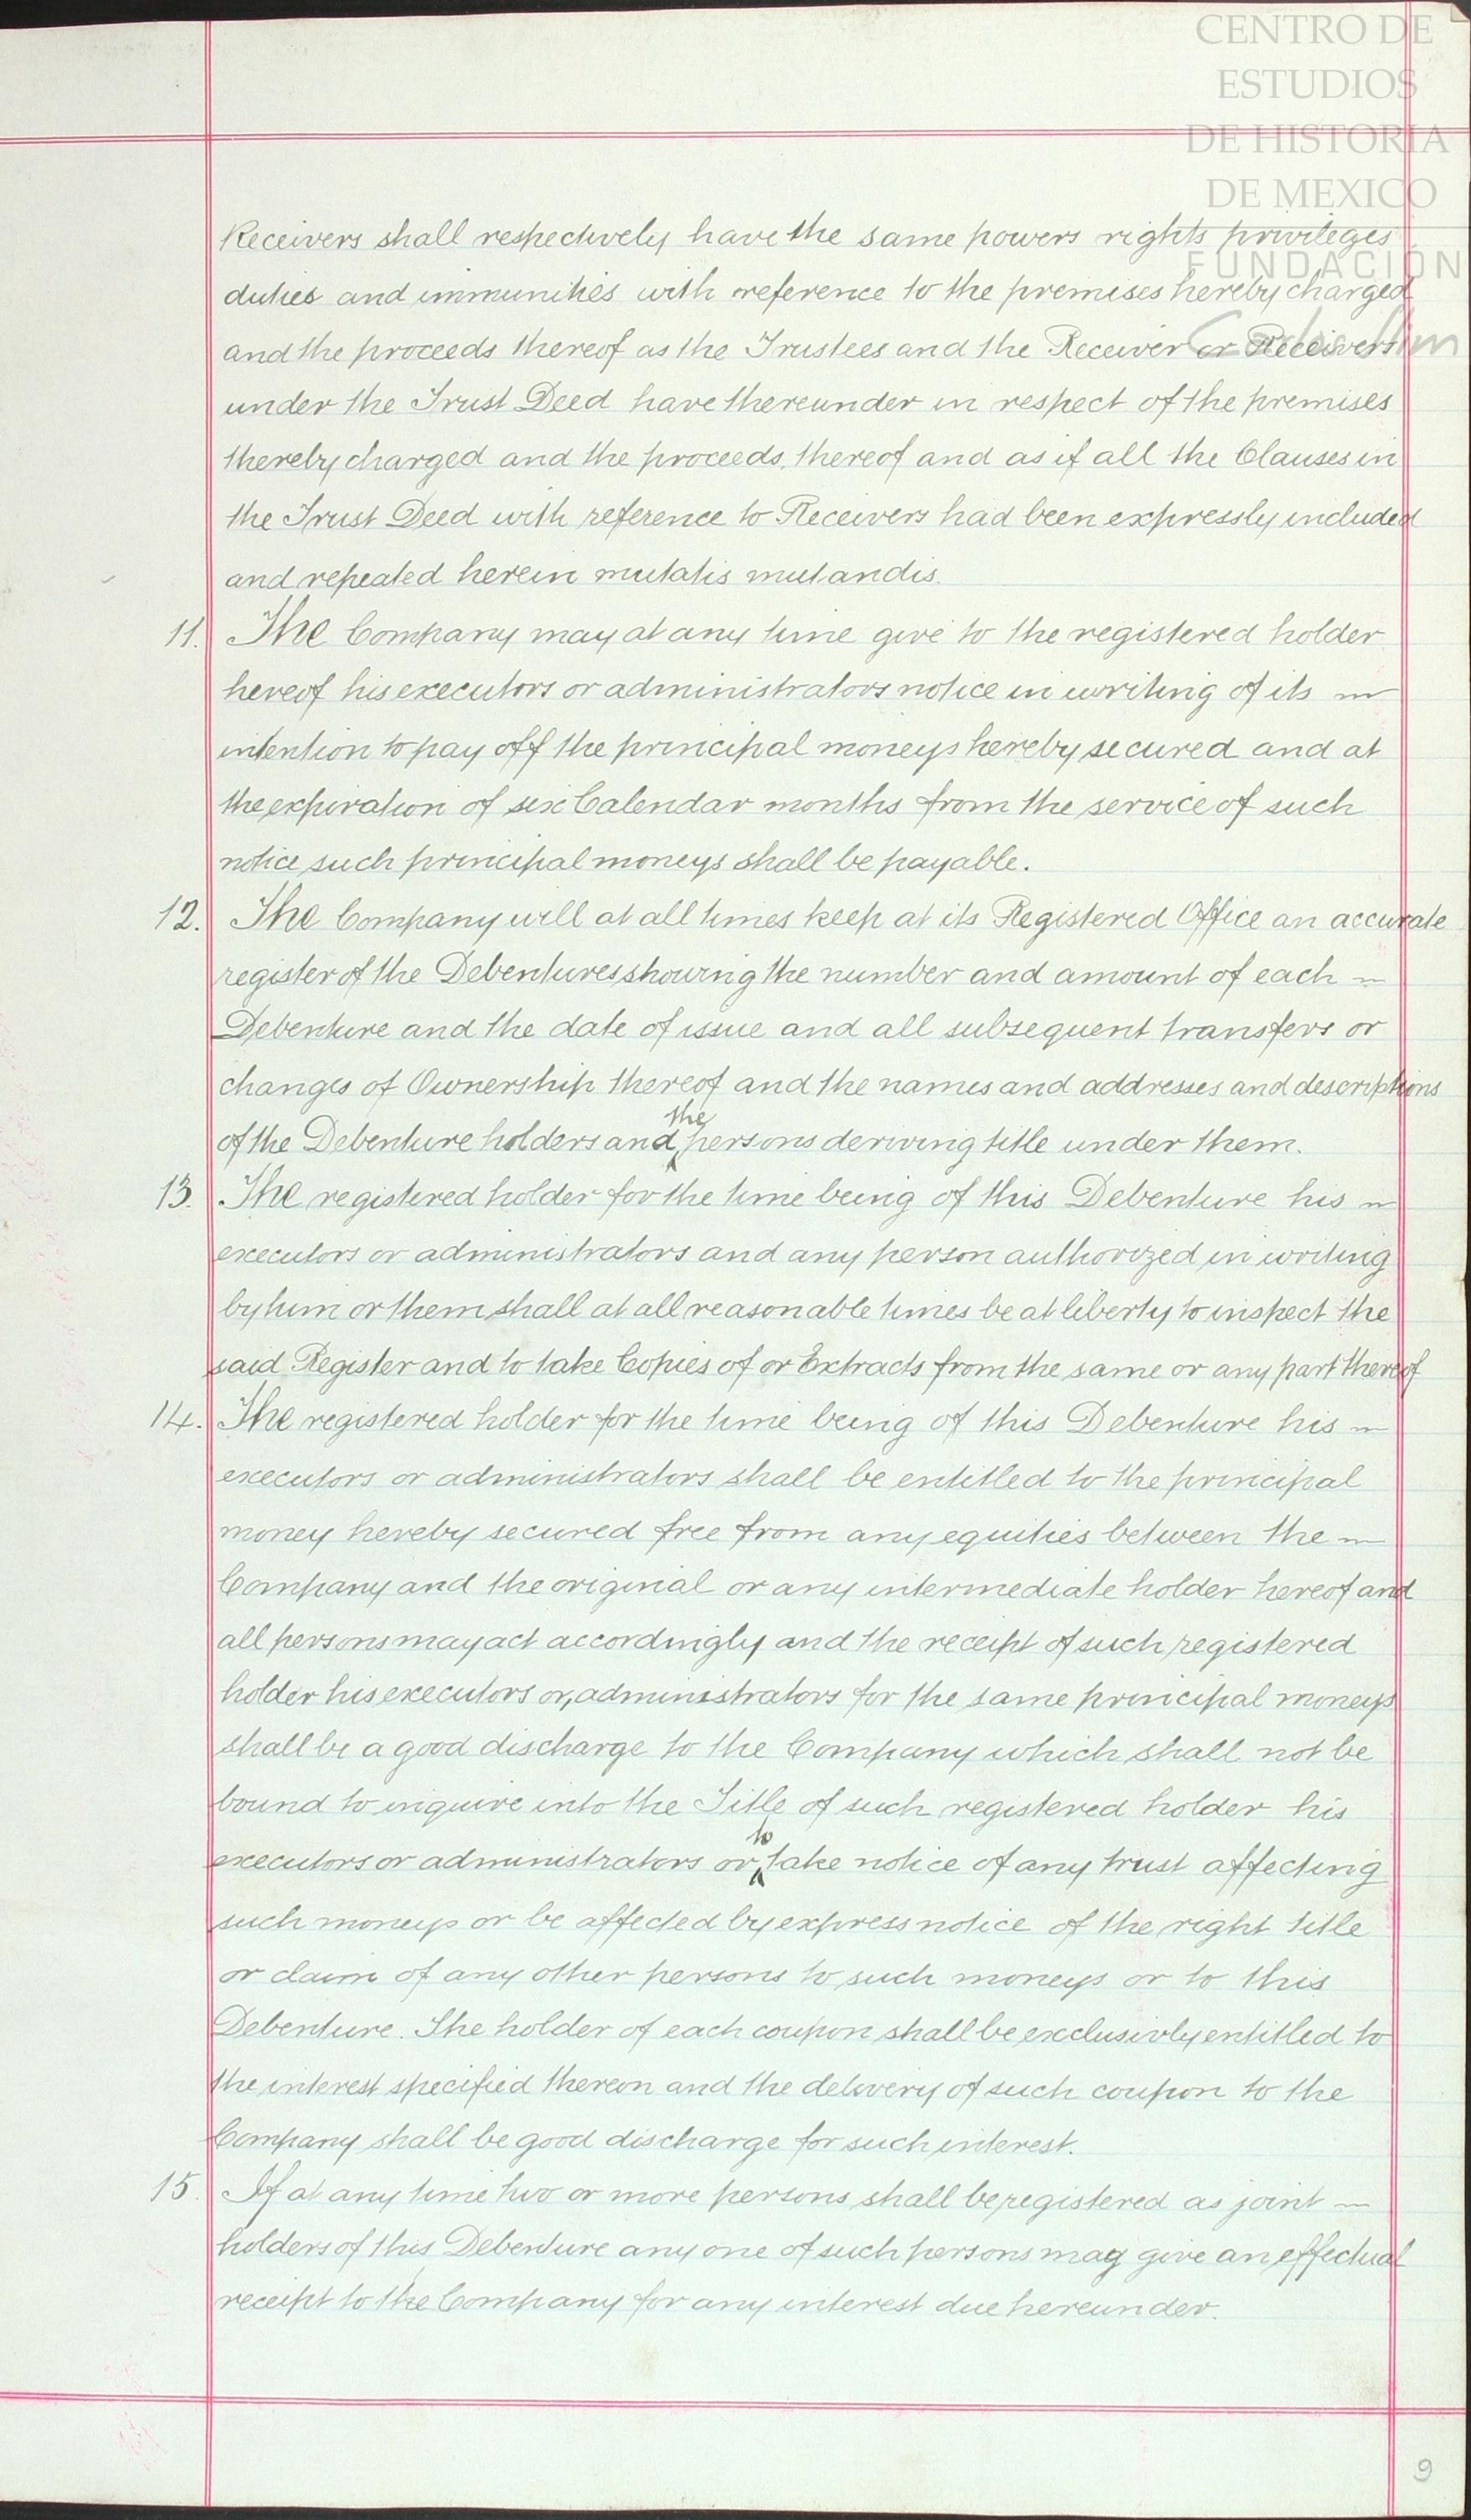 CENTRO DE
ESTUDIOS
DE HISTORIA
DE MEXICO
FUNDACIÓN
Carlos Slim
Receivers shall respectively have the same powers rights privileges
duties and immunities with reference to the premises hereby charged
and the proceeds thereof as the Trustees and the Receiver or Receivers
under the Trust Deed have thereunder in respect of the premises
thereby charged and the proceeds thereof and as if all the Clauses in
the Trust Deed with reference to Receivers had been expressly included
and repeated herein mutatis mutandis.
11. The Company may at any time give to the registered holder
hereof his executors or administrators notice in writing of its
intention to pay off the principal moneys hereby secured and at
the expiration of six Calendar months from the service of such
notice such principal moneys shall be payable.
12. The Company will at all times keep at its Registered Office an accurate
register of the Debentures showing the number and amount of each
Debenture and the date of issue and all subsequent transfers or
changes of Ownership thereof and the names and addresses and descriptions
of the Debenture holders and the persons deriving title under them.
13. The registered holder for the time being of this Debenture his
executors or administrators and any person authorized in writing
by him or them shall at all reasonable times be at liberty to inspect the
said Register and to take Copies of or Extracts from the same or any part thereof
14. The registered holder for the time being of this Debenture his
executors or administrators shall be entitled to the principal
money hereby secured free from any equities between the
Company and the original or any intermediate holder hereof and
all persons may act accordingly and the receipt of such registered
holder his executors or administrators for the same principal moneys
shall be a good discharge to the Company which shall not be
bound to inquire into the Title of such registered holder his
executors or administrators or to take notice of any trust affecting
such moneys or be affected by express notice of the right title
or claim of any other persons to such moneys or to this
Debenture. The holder of each coupon shall be exclusivly entitled to
the interest specified thereon and the delivery of such coupon to the
Company shall be good discharge for such interest.
15. If at any time two or more persons shall be registered as joint
holders of this Debenture any one of such persons may give an effectual
receipt to the Company for any interest due hereunder.
9